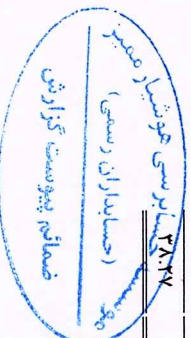 موسسه حسابرسی هوشیار ممیز
(حسابداران رسمی)
ضمائم پیوست گزارش
۳۸.۲۷